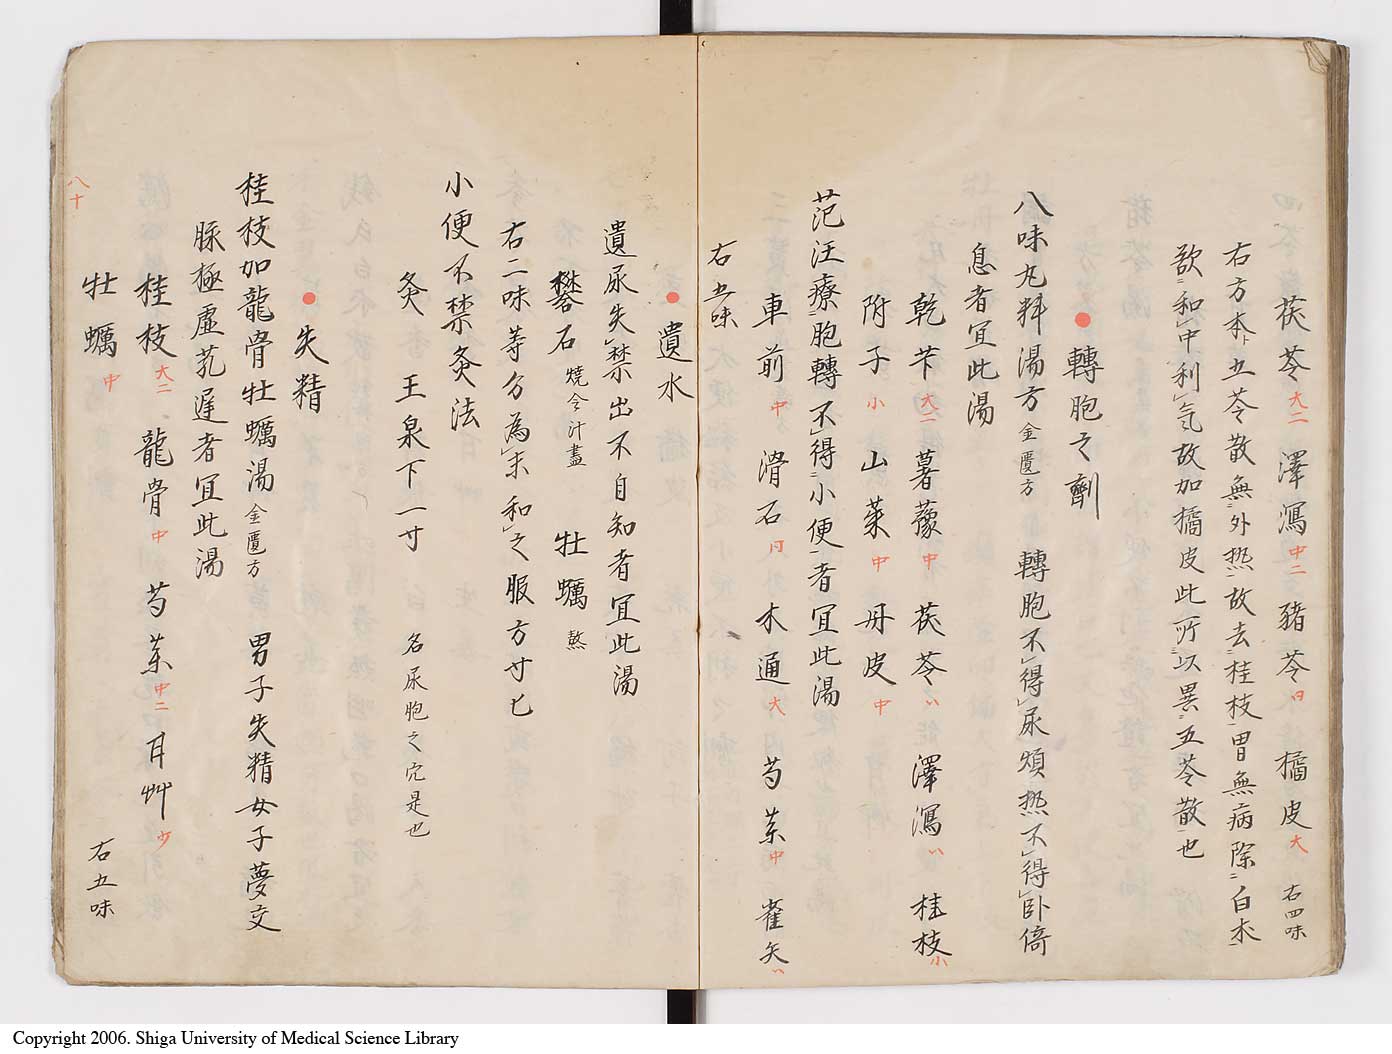 茯苓 大二 澤瀉 中二 豬苓 橘皮 大 右四味
右方本五苓散無外热故去桂枝胃無病除白朮
欲和中利气故加橘皮此所以異五苓散也
轉胞之劑
八味丸料湯方 金匱方 轉胞不得尿煩热不得卧倚
息者冝此湯
乾芐 大二 薯蕷 中 茯苓 澤瀉 桂枝 小
附子 小 山茱 中 丹皮 中
范汪療胞轉不得小便者冝此湯
車前 中 滑石 木通 大 芍薬 中 雀矢
右五味
遺水
遺尿失禁出不自知者冝此湯
礬石 燒令汁盡 牡蠣 熬
右二味等分為末和之服方寸匕
小便不禁灸法
灸 玉泉下一寸 名尿胞之穴是也
失精
桂枝加龍骨牡蠣湯 金匱方 男子失精女子夢交
脉極虛芤遲者冝此湯
桂枝 大二 龍骨 中 芍薬 中二 甘艸 少
牡蠣 中 右五味
八十
Copyright 2006. Shiga University of Medical Science Library